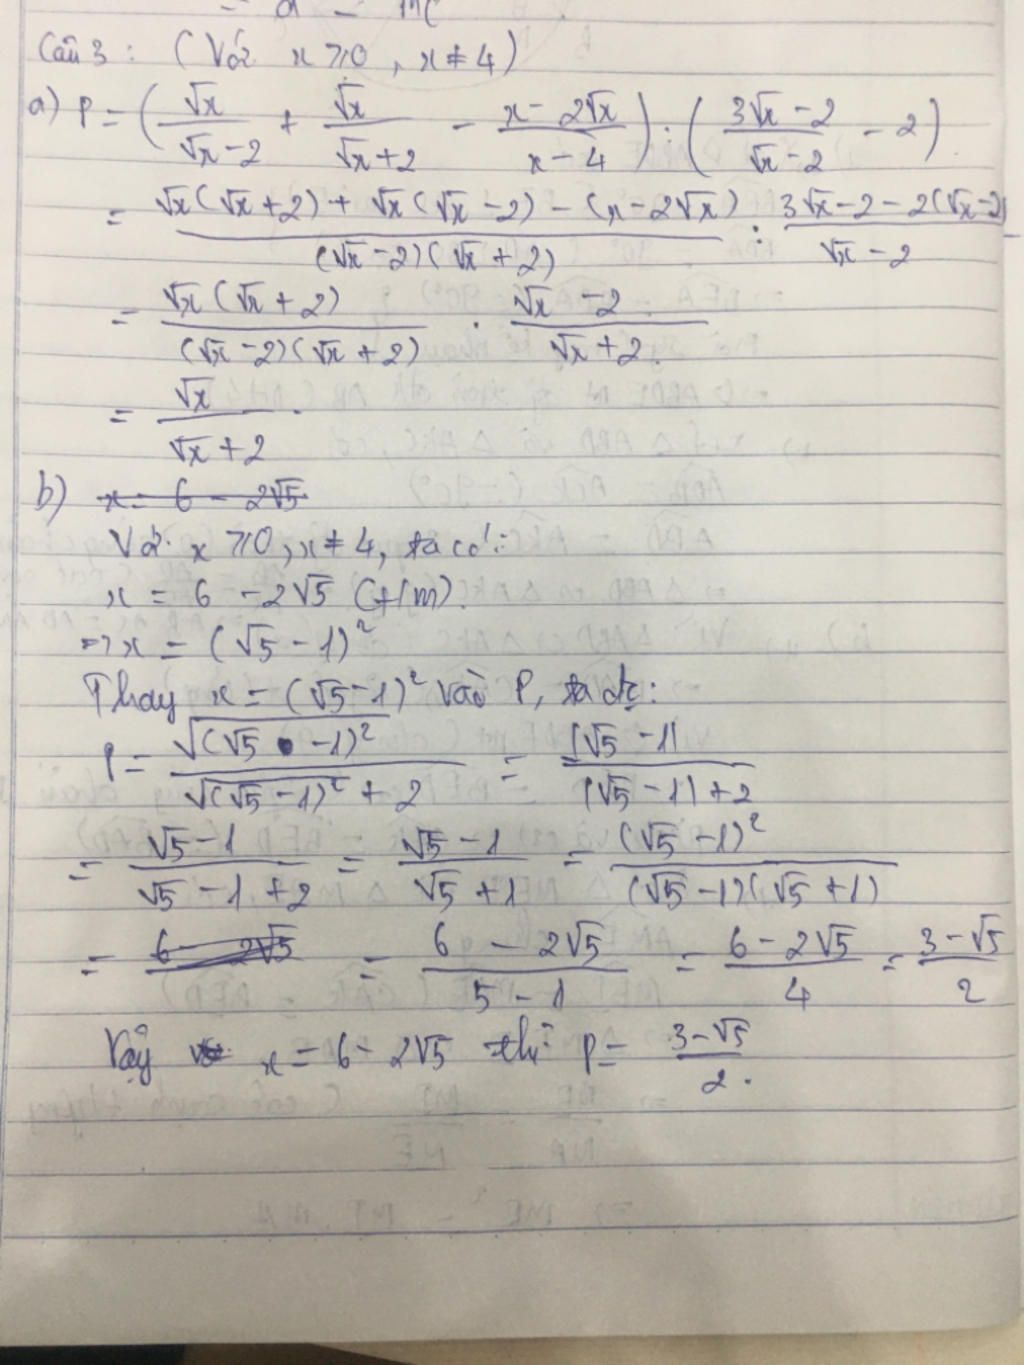 Câu 3 : (Với x ⩾ 0, x ≠ 4)
a) P = (√x/(√x - 2) + √x/(√x + 2) - (x - 2√x)/(x - 4)) : ((3√x - 2)/(√x - 2) - 2)
= (√x(√x + 2) + √x(√x - 2) - (x - 2√x))/((√x - 2)(√x + 2)) : (3√x - 2 - 2(√x - 2))/(√x - 2)
= (√x(√x + 2))/((√x - 2)(√x + 2)) . (√x - 2)/(√x + 2).
= √x/(√x + 2).
b) x = 6 - 2√5.
Với x ⩾ 0, x ≠ 4, ta có:
x = 6 - 2√5 (t/m).
=> x = (√5 - 1)²
Thay x = (√5 - 1)² vào P, ta đc:
P = √(√5 - 1)²/(√(√5 - 1)² + 2) = |√5 - 1|/(|√5 - 1| + 2)
= (√5 - 1)/(√5 - 1 + 2) = (√5 - 1)/(√5 + 1) = (√5 - 1)²/((√5 - 1)(√5 + 1))
= 6 - 2√5 = (6 - 2√5)/(5 - 1) = (6 - 2√5)/4 = (3 - √5)/2
Vậy x = 6 - 2√5 thì P = (3 - √5)/2.